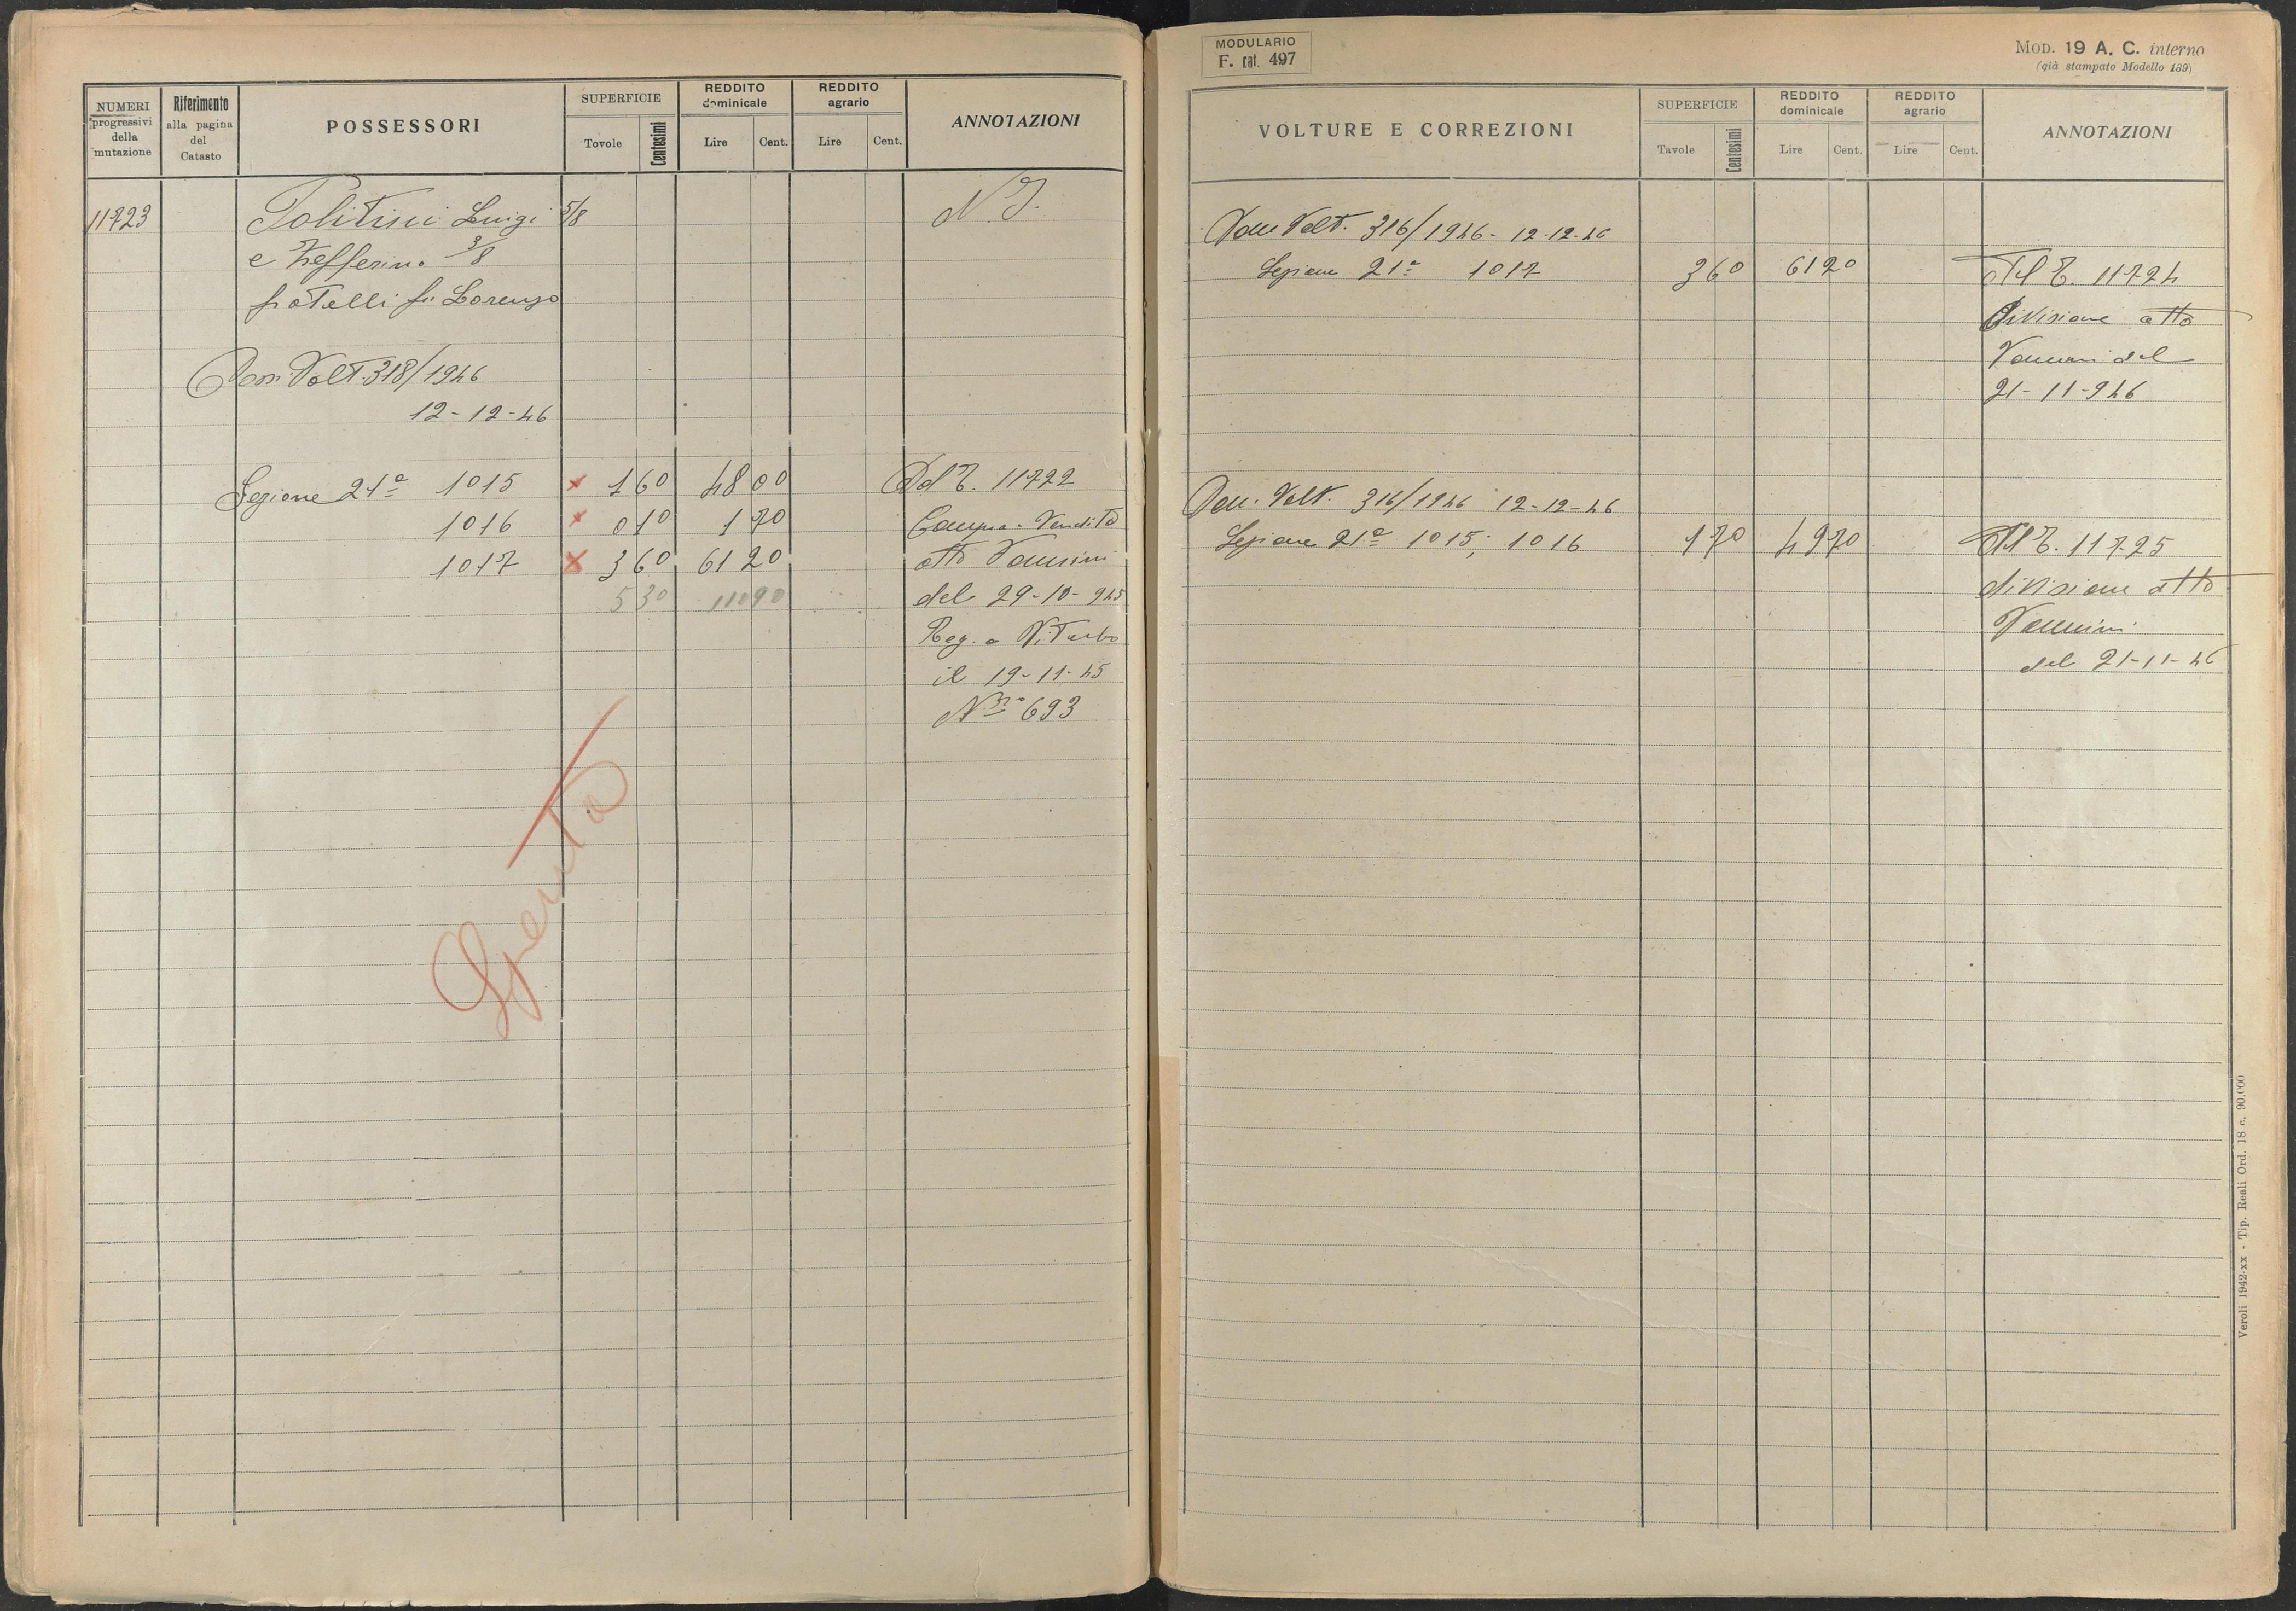 NUMERI progressivi della mutazione
Riferimento alla pagina del Catasto
POSSESSORI
SUPERFICIE
Tovole Centesimi
REDDITO dominicale
Lire Cent.
REDDITO agrario
Lire Cent.
ANNOTAZIONI
11723 Politini Luigi 5/8 N. I.
e Zefferino 3/8
fratelli fu Lorenzo
Dom. Volt. 318/1946
12-12-46
Sezione 21ª 1015 x 1 60 48 00 Dal T. 11722
1016 x 0 10 1 70 Compra-Vendita
1017 x 3 60 61 20 atto Vannini
5 30 110 90 del 29-10-945
Reg. a Viterbo
il 19-11-45
N° 693
Spenta
MODULARIO
F. cat. 497
MOD. 19 A. C. interno
(già stampato Modello 139)
VOLTURE E CORREZIONI
SUPERFICIE
Tavole Centesimi
REDDITO dominicale
Lire Cent.
REDDITO agrario
Lire Cent.
ANNOTAZIONI
Dom. Volt. 316/1946- 12-12-46
Sezione 21ª 1017 3 60 61 20 Al T. 11724
Divisione atto
Vannini del
21-11-946
Dom. Volt. 316/1946 12-12-46
Sezione 21ª 1015; 1016 1 70 49 70 Al T. 11725
divisione atto
Vannini
del 21-11-46
Veroli 1942-XX - Tip. Reali Ord. 18 c. 90.000